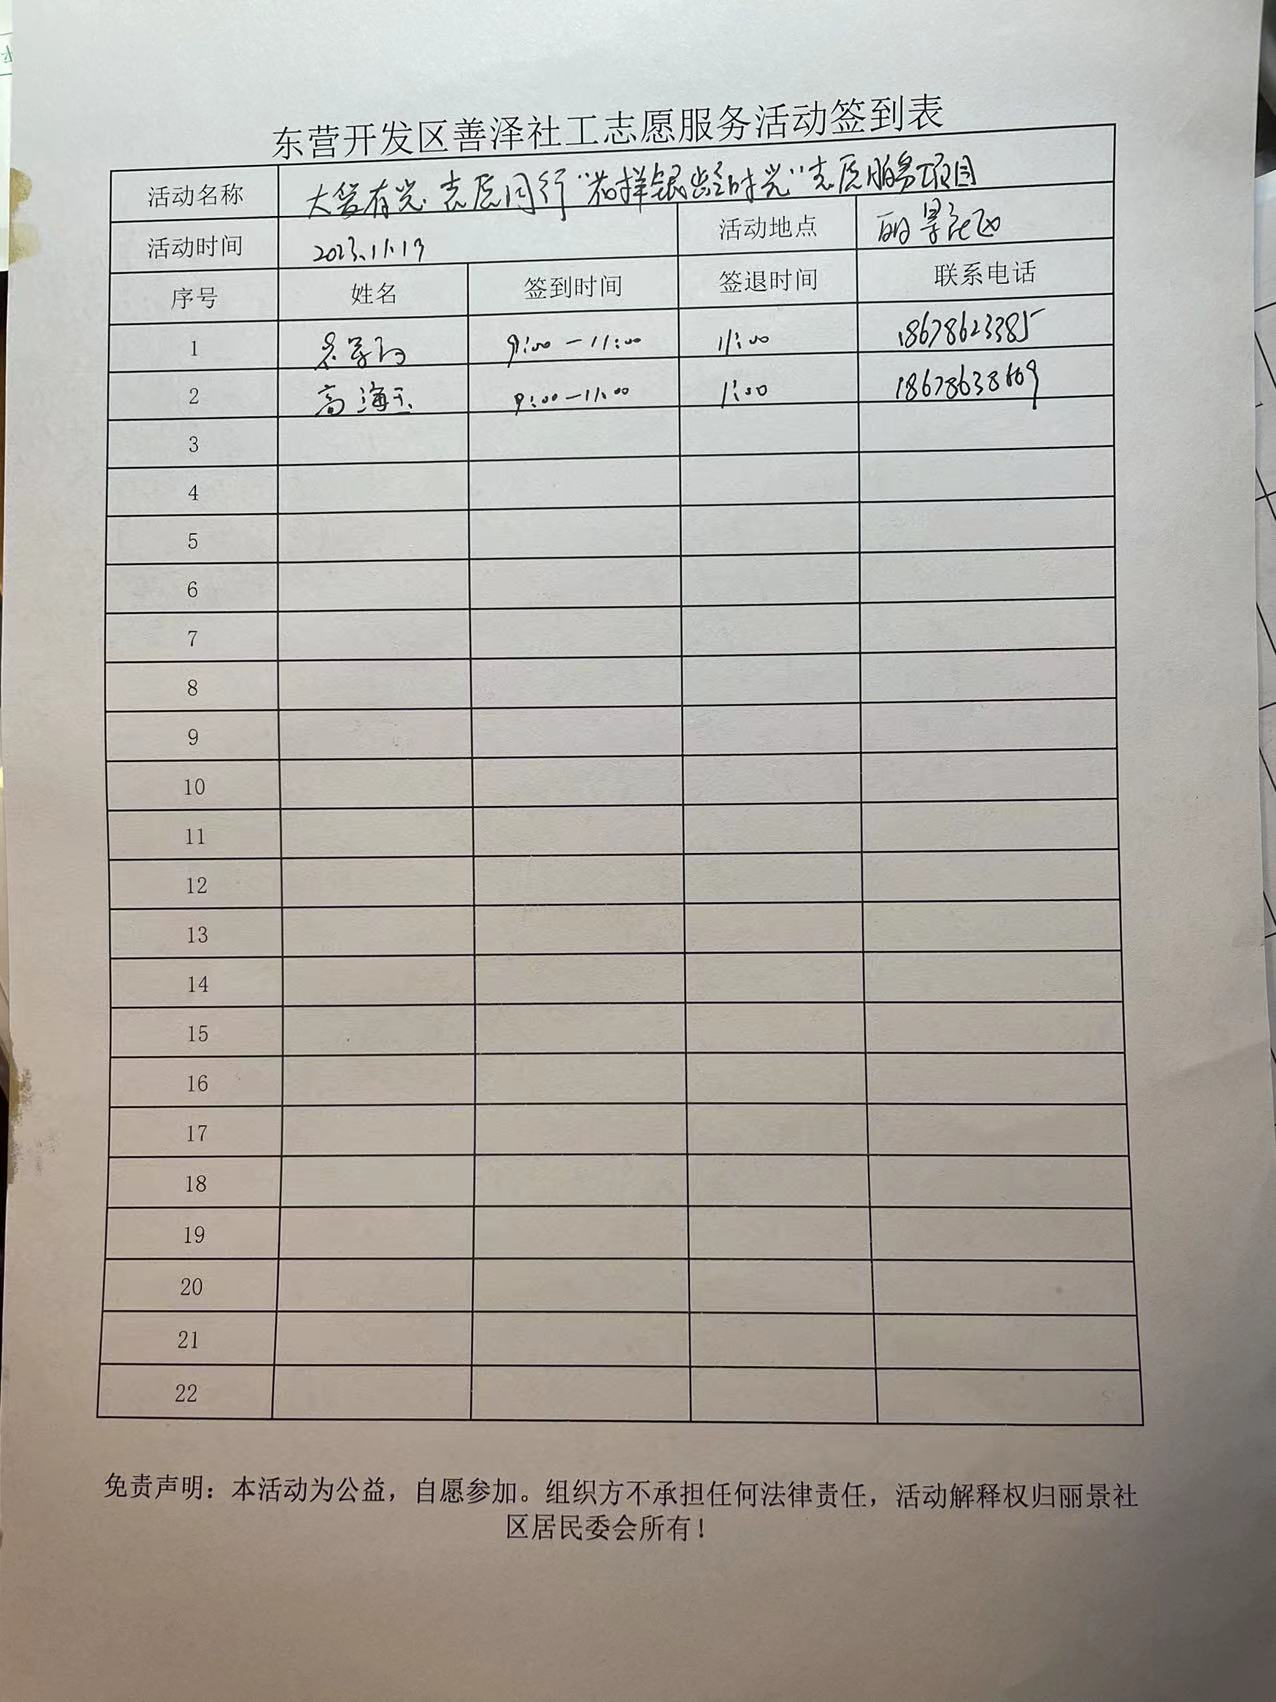 东营开发区善泽社工志愿服务活动签到表
活动名称 大爱有光 志愿同行"花样银龄时光"志愿服务项目
活动时间 2023.11.19 活动地点 丽景社区
序号 姓名 签到时间 签退时间 联系电话
1 9:00-11:00 11:00 18678623385
2 高海玉 9:00-11:00 11:00 18678638669
3
4
5
6
7
8
9
10
11
12
13
14
15
16
17
18
19
20
21
22
免责声明：本活动为公益，自愿参加。组织方不承担任何法律责任，活动解释权归丽景社
区居民委会所有！